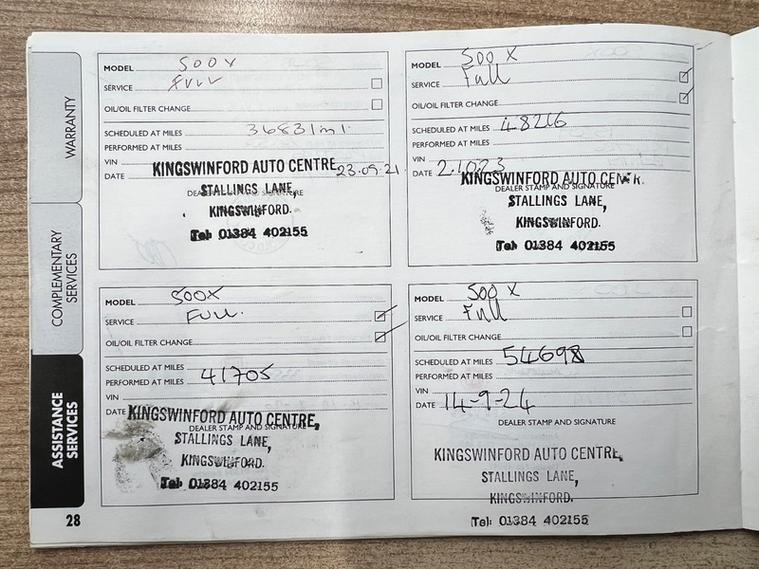 WARRANTY
COMPLEMENTARY
SERVICES
ASSISTANCE
SERVICES
28
MODEL 500X
SERVICE Full
OIL/OIL FILTER CHANGE
SCHEDULED AT MILES 36831ml
PERFORMED AT MILES
VIN
DATE 23.09.21
DEALER STAMP AND SIGNATURE
KINGSWINFORD AUTO CENTRE
STALLINGS LANE,
KINGSWINFORD.
Tel: 01384 402155
MODEL 500X
SERVICE Full
OIL/OIL FILTER CHANGE
SCHEDULED AT MILES 48216
PERFORMED AT MILES
VIN
DATE 2.10.23
KINGSWINFORD AUTO CENTRE
DEALER STAMP AND SIGNATURE
STALLINGS LANE,
KINGSWINFORD.
Tel: 01384 402155
MODEL 500X
SERVICE FULL.
OIL/OIL FILTER CHANGE
SCHEDULED AT MILES
PERFORMED AT MILES 41705
VIN
DATE
KINGSWINFORD AUTO CENTRE,
DEALER STAMP AND SIGNATURE
STALLINGS LANE,
KINGSWINFORD.
Tel: 01384 402155
MODEL 500X
SERVICE Full
OIL/OIL FILTER CHANGE
SCHEDULED AT MILES 54698
PERFORMED AT MILES
VIN
DATE 14-9-24
DEALER STAMP AND SIGNATURE
KINGSWINFORD AUTO CENTRE,
STALLINGS LANE,
KINGSWINFORD.
Tel: 01384 402155